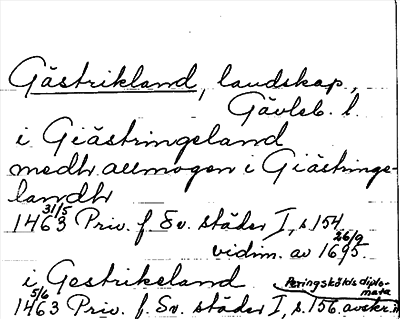 Gästrikland, landskap,
Gävleb. l.
i Giästringeland
medh allmogen i Giästringe-
landh
31/5
1463 Priv. f. Sv. städer I, s. 154
26/9
vidim. av 1695.
i Gestrikeland Peringskölds diplo-
mata
5/6
1463 Priv. f. Sv. städer I, s. 156. avskr. i